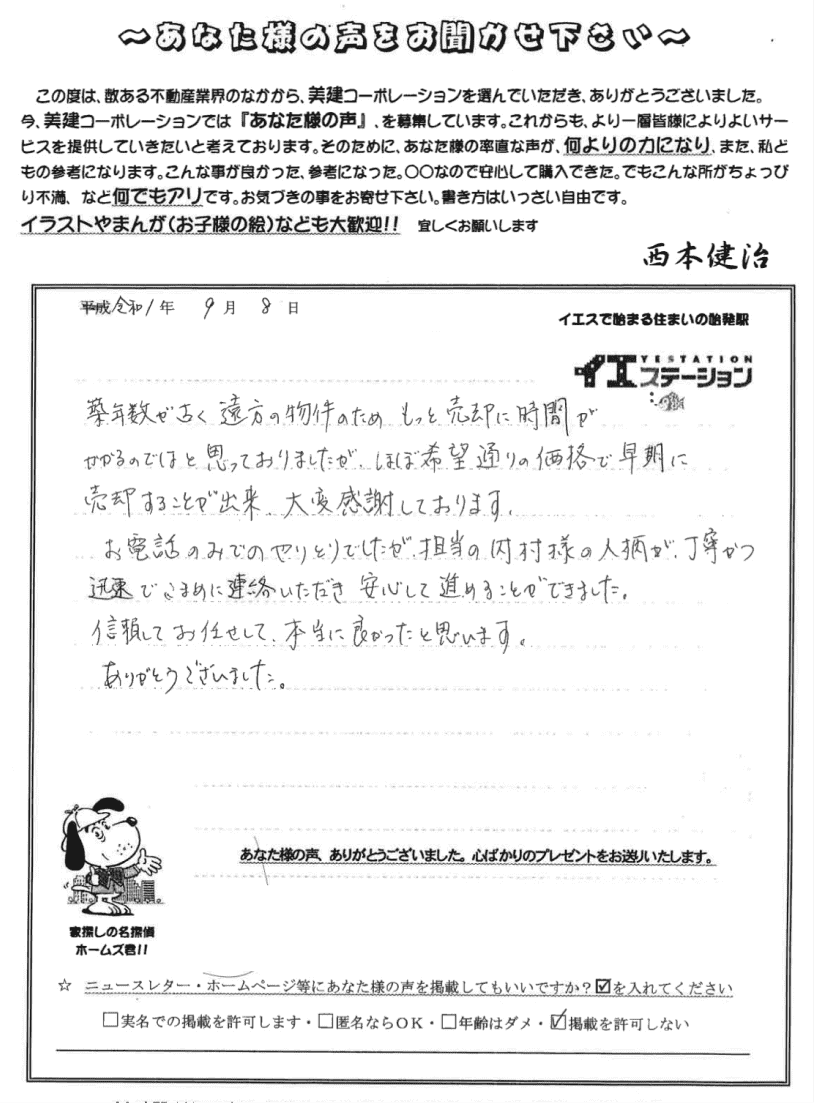 ～あなた様の声をお聞かせ下さい～
この度は、数ある不動産業界のなかから、美建コーポレーションを選んでいただき、ありがとうございました。
今、美建コーポレーションでは『あなた様の声』、を募集しています。これからも、より一層皆様によりよいサー
ビスを提供していきたいと考えております。そのために、あなた様の率直な声が、何よりの力になり、また、私ど
もの参考になります。こんな事が良かった、参考になった。〇〇なので安心して購入できた。でもこんな所がちょっぴ
り不満、など何でもアリです。お気づきの事をお寄せ下さい。書き方はいっさい自由です。
イラストやまんが（お子様の絵）なども大歓迎!! 宜しくお願いします
西本健治
平成令和1年 9月 8日
イエスで始まる住まいの始発駅
YESTATION
イエステーション
築年数が古く遠方の物件のため もっと売却に時間が
かかるのではと思っておりましたが、ほぼ希望通りの価格で早期に
売却することが出来、大変感謝しております。
お電話のみでのやりとりでしたが、担当の内村様の人柄が、丁寧かつ
迅速でこまめに連絡いただき 安心して進めることができました。
信頼してお任せして、本当に良かったと思います。
ありがとうございました。
あなた様の声、ありがとうございました。心ばかりのプレゼントをお送りいたします。
家探しの名探偵
ホームズ君!!
☆ ニュースレター・ホームページ等にあなた様の声を掲載してもいいですか？☑を入れてください
□実名での掲載を許可します・□匿名ならOK・□年齢はダメ・☑掲載を許可しない